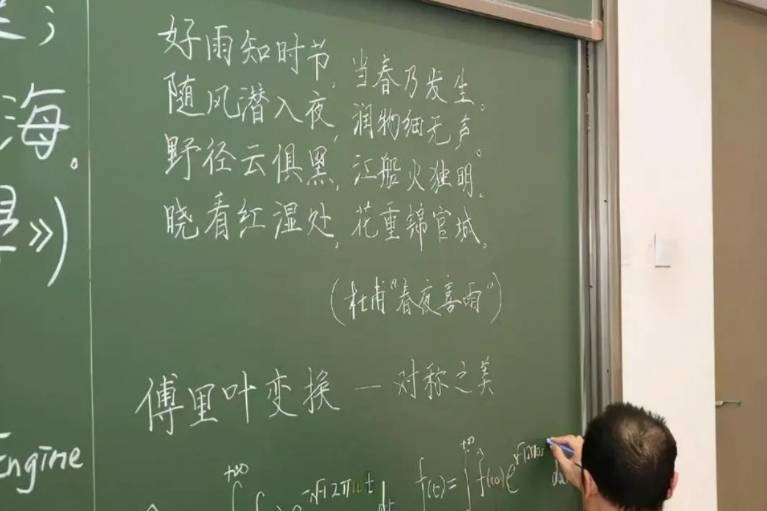 海。
》)
Engine
好雨知时节,当春乃发生。
随风潜入夜,润物细无声。
野径云俱黑,江船火独明。
晓看红湿处,花重锦官城。
(杜甫“春夜喜雨”)
傅里叶变换 — 对称之美
+∞ e^-√-1 2πωt dt f(t)=∫ +∞ f̂(ω)e^√-1 2πω